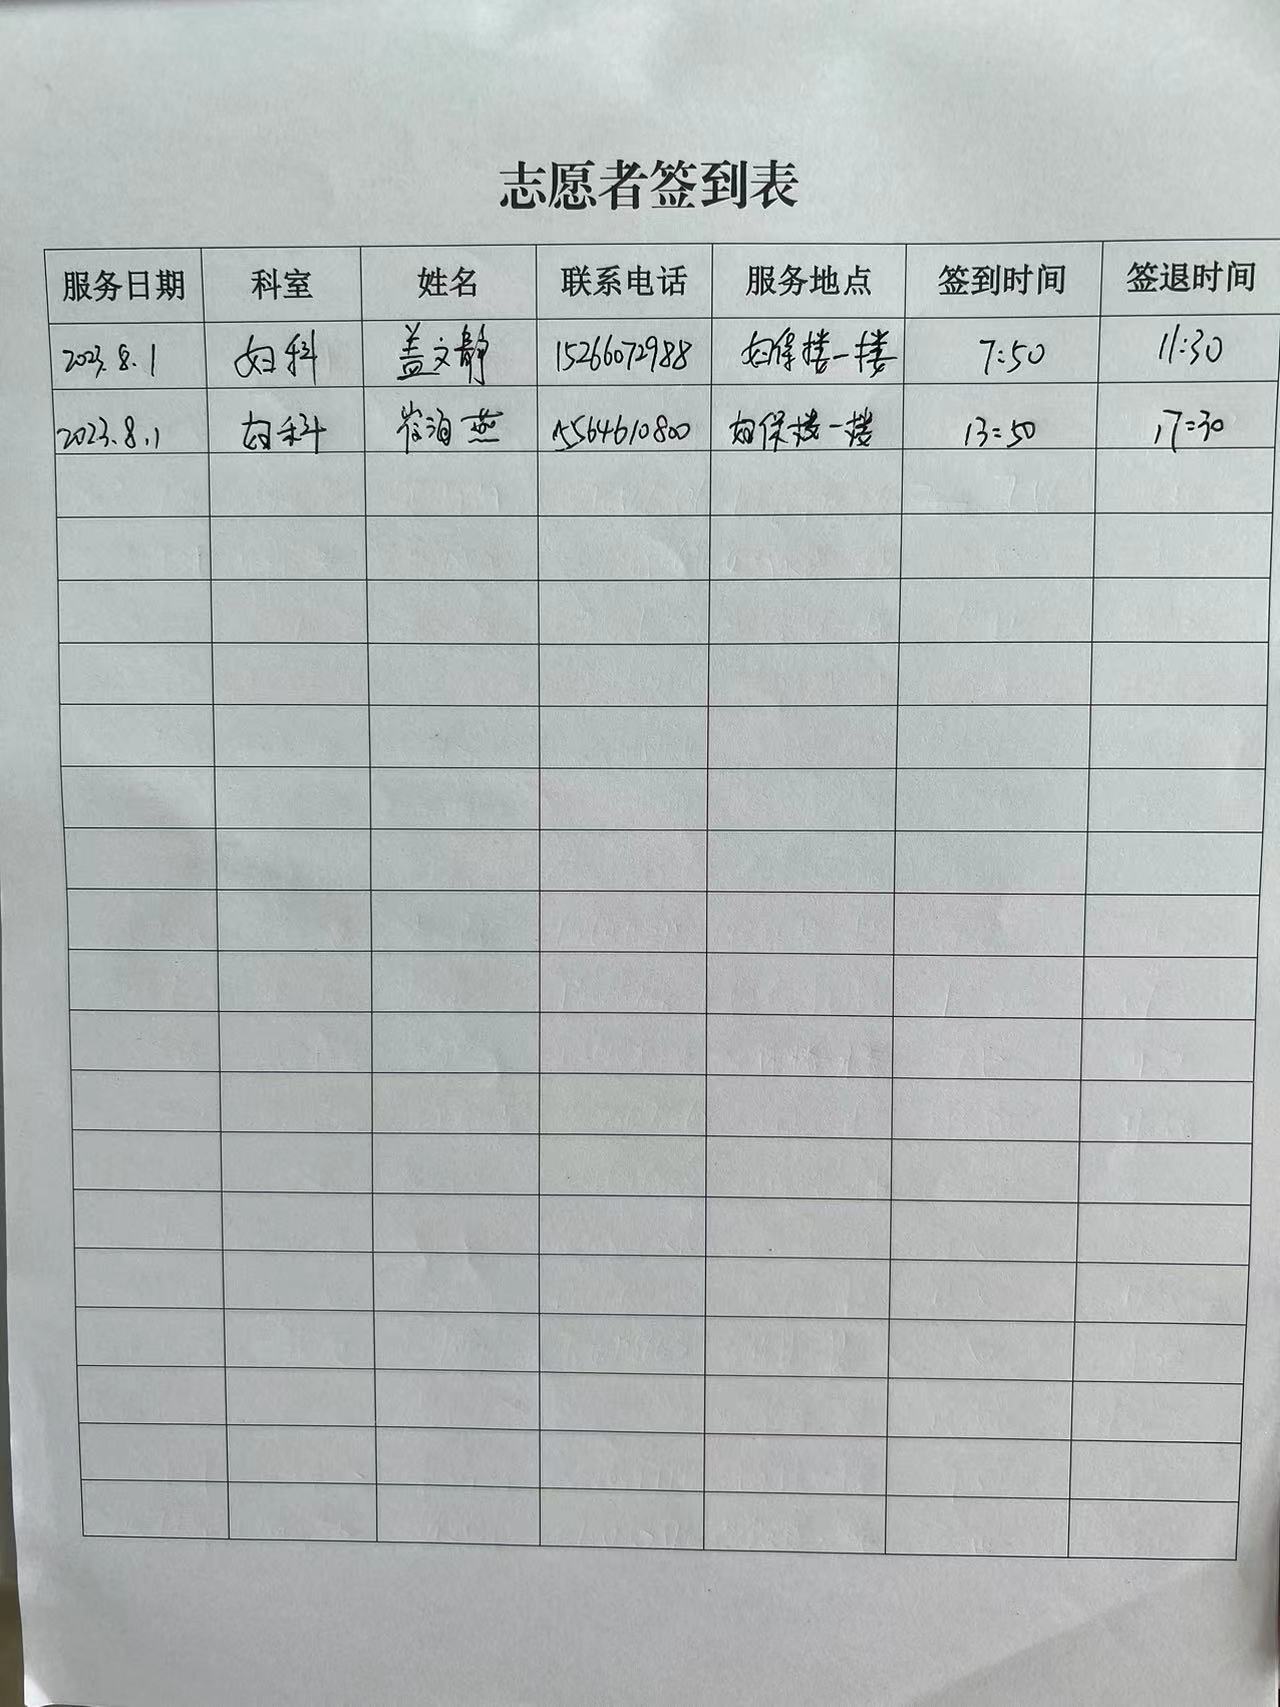 志愿者签到表
服务日期 科室 姓名 联系电话 服务地点 签到时间 签退时间
2023.8.1 妇科 盖文静 15266072988 妇保楼一楼 7:50 11:30
2023.8.1 妇科 崔海燕 15564610800 妇保楼一楼 13:50 17:30